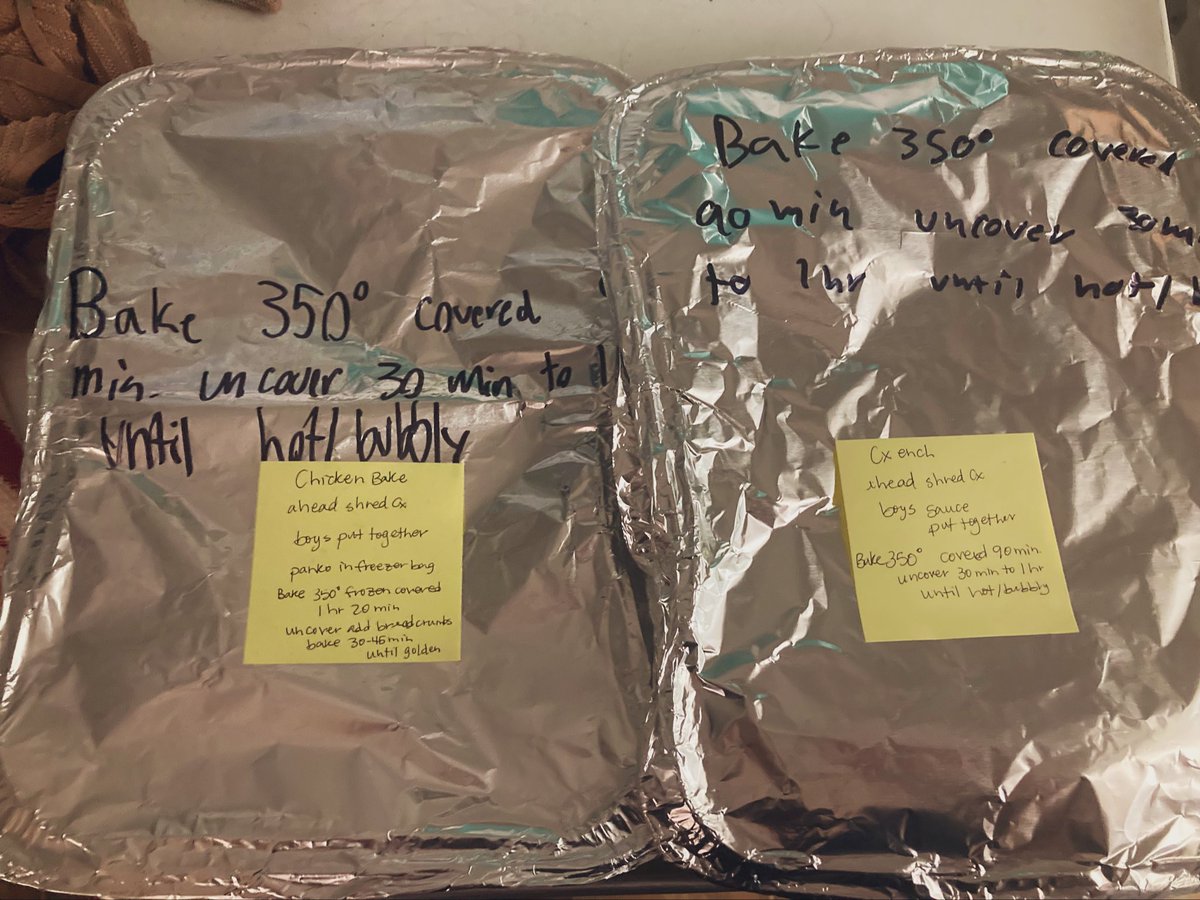 Bake 350° covered
min. uncover 30 min to
until hot/bubbly
Chicken Bake
ahead shred Cx
boys put together
panko in freezer bag
Bake 350° frozen covered
1 hr 20 min
uncover add breadcrumbs
bake 30-45 min
until golden
Bake 350° covered
90 min uncover 30 m
to 1 hr until hot/
Cx ench
ahead shred Cx
boys sauce
put together
Bake 350° covered 90 min.
uncover 30 min to 1 hr
until hot/bubbly